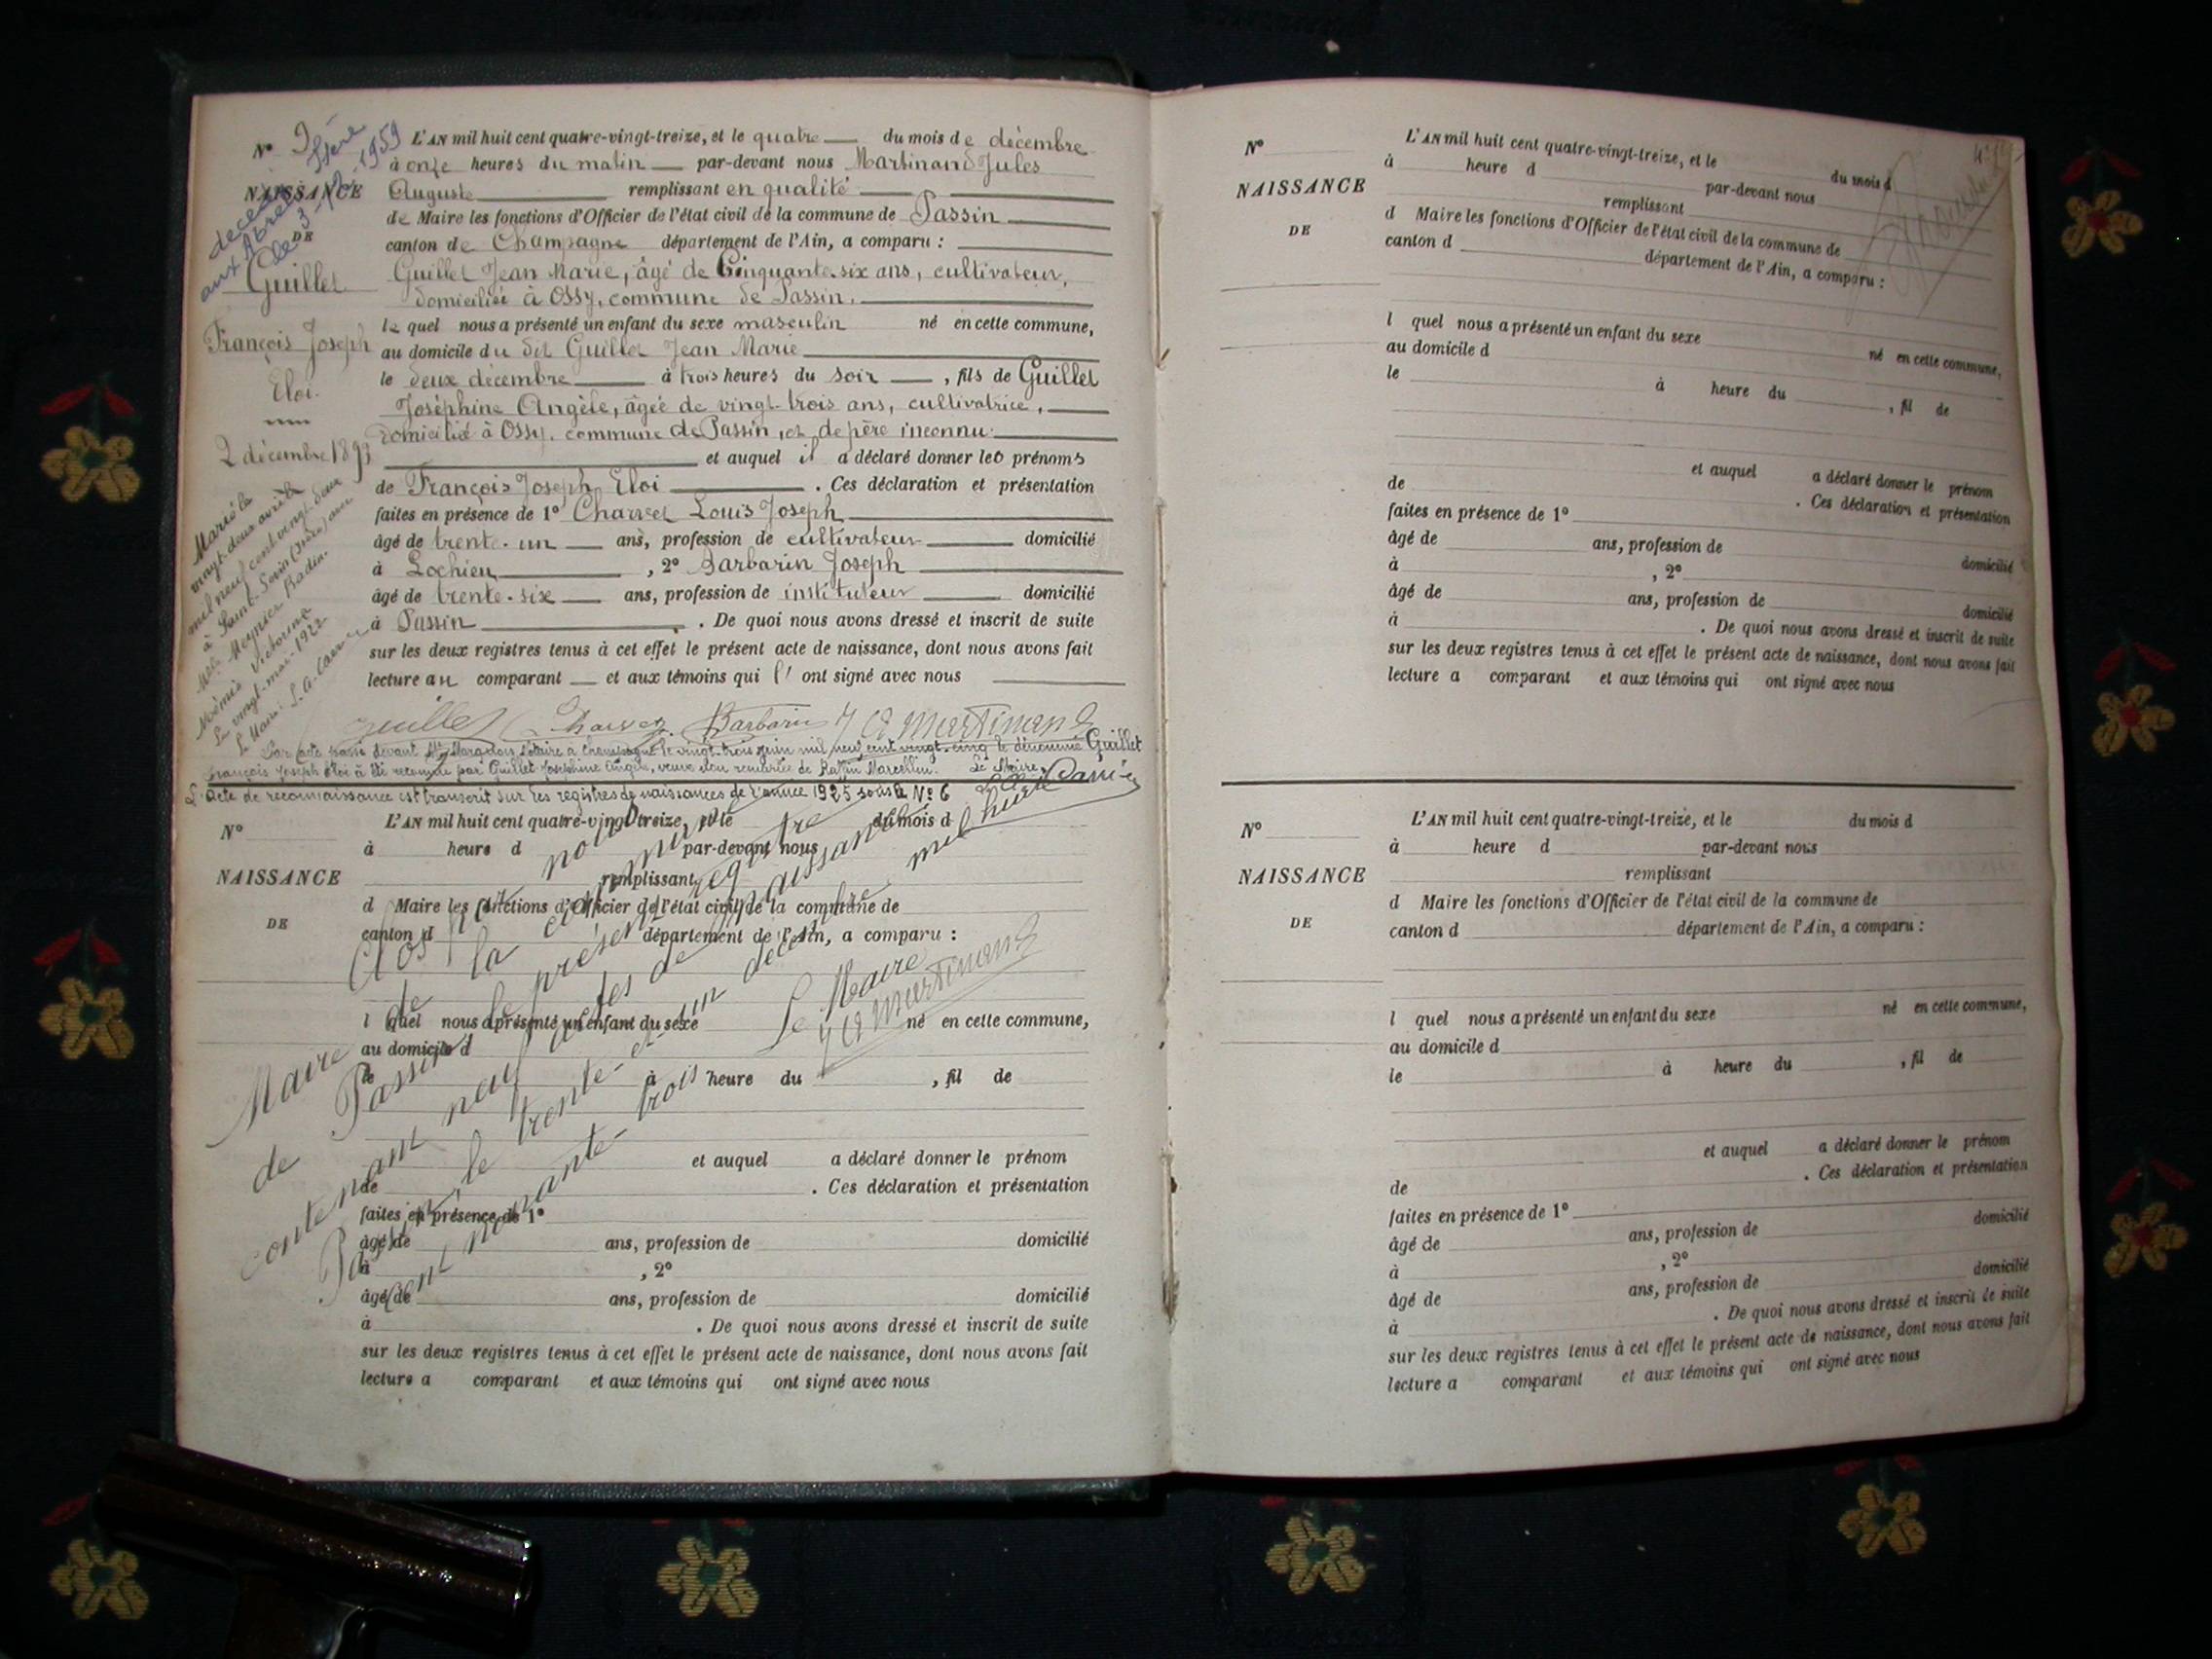 N° 9
NAISSANCE
DE
Guillet
François Joseph
Eloi.
2 décembre 1893
décédé
aux Abrets
Isère
le 3-
1959
Marié le
vingt-deux avril
mil neuf cent vingt-deux
à Saint-Savin (Isère) avec
Melle Meynier
Noémie Victorine
Le vingt mai 1922
Le Maire:
L'AN mil huit cent quatre-vingt-treize, et le quatre du mois de décembre
à onze heures du matin par-devant nous Martinand Jules
Auguste remplissant en qualité
de Maire les fonctions d'Officier de l'état civil de la commune de Passin
canton de Champagne département de l'Ain, a comparu :
Guillet Jean Marie, âgé de Cinquante-six ans, cultivateur,
domicilié à Ossy, commune de Passin.
le quel nous a présenté un enfant du sexe masculin né en cette commune,
au domicile du dit Guillet Jean Marie
le deux décembre à trois heures du soir , fils de Guillet
Joséphine Angèle, âgée de vingt-trois ans, cultivatrice,
domiciliée à Ossy, commune de Passin, et de père inconnu.
et auquel il a déclaré donner les prénoms
de François Joseph Eloi . Ces déclaration et présentation
faites en présence de 1° Charvet Louis Joseph
âgé de trente-un ans, profession de cultivateur domicilié
à Lochieu , 2° Barbarin Joseph
âgé de trente-six ans, profession de instituteur domicilié
à Passin . De quoi nous avons dressé et inscrit de suite
sur les deux registres tenus à cet effet le présent acte de naissance, dont nous avons fait
lecture au comparant et aux témoins qui l' ont signé avec nous
Guillet Charvet Barbarin J A Martinand
Par acte passé devant Me notaire à Champagne le vingt-trois juin mil neuf cent vingt-cinq le dénommé Guillet
François Joseph Eloi a été reconnu par Guillet Joséphine Angèle, veuve non remariée de Marcellin. Le Maire,
L'acte de reconnaissance est transcrit sur les registres de naissances de l'année 1925 sous le N° 6
N°
NAISSANCE
DE
L'AN mil huit cent quatre-vingt-treize, et le du mois d
à heure d par-devant nous
remplissant
d Maire les fonctions d'Officier de l'état civil de la commune de
canton d département de l'Ain, a comparu :
l quel nous a présenté un enfant du sexe né en cette commune,
au domicile d
le à heure du , fil de
et auquel a déclaré donner le prénom
de . Ces déclaration et présentation
faites en présence de 1°
âgé de ans, profession de domicilié
à , 2°
âgé de ans, profession de domicilié
à . De quoi nous avons dressé et inscrit de suite
sur les deux registres tenus à cet effet le présent acte de naissance, dont nous avons fait
lecture a comparant et aux témoins qui ont signé avec nous
Clos par nous
Maire de la commune
de Passin le présent registre
contenant neuf actes de naissance
Passin, le trente-et-un décembre mil huit
cent nonante-trois
Le Maire
J A Martinand
N°
NAISSANCE
DE
L'AN mil huit cent quatre-vingt-treize, et le du mois d
à heure d par-devant nous
remplissant
d Maire les fonctions d'Officier de l'état civil de la commune de
canton d département de l'Ain, a comparu :
l quel nous a présenté un enfant du sexe né en cette commune,
au domicile d
le à heure du , fil de
et auquel a déclaré donner le prénom
de . Ces déclaration et présentation
faites en présence de 1°
âgé de ans, profession de domicilié
à , 2°
âgé de ans, profession de domicilié
à . De quoi nous avons dressé et inscrit de suite
sur les deux registres tenus à cet effet le présent acte de naissance, dont nous avons fait
lecture a comparant et aux témoins qui ont signé avec nous
N°
NAISSANCE
DE
L'AN mil huit cent quatre-vingt-treize, et le du mois d
à heure d par-devant nous
remplissant
d Maire les fonctions d'Officier de l'état civil de la commune de
canton d département de l'Ain, a comparu :
l quel nous a présenté un enfant du sexe né en cette commune,
au domicile d
le à heure du , fil de
et auquel a déclaré donner le prénom
de . Ces déclaration et présentation
faites en présence de 1°
âgé de ans, profession de domicilié
à , 2°
âgé de ans, profession de domicilié
à . De quoi nous avons dressé et inscrit de suite
sur les deux registres tenus à cet effet le présent acte de naissance, dont nous avons fait
lecture a comparant et aux témoins qui ont signé avec nous